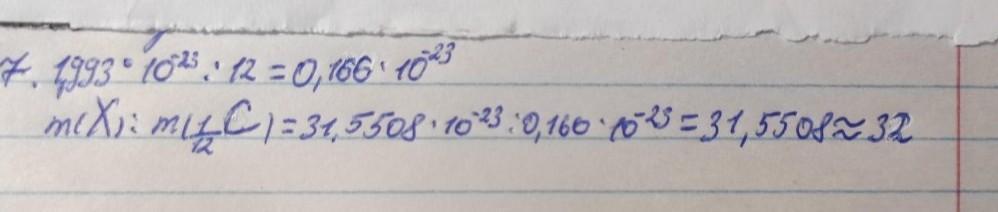 7. 1,993 · 10⁻²³ : 12 = 0,166 · 10⁻²³
m(X) : m(1/12 C) = 31,5508 · 10⁻²³ : 0,166 · 10⁻²³ = 31,5508 ≈ 32